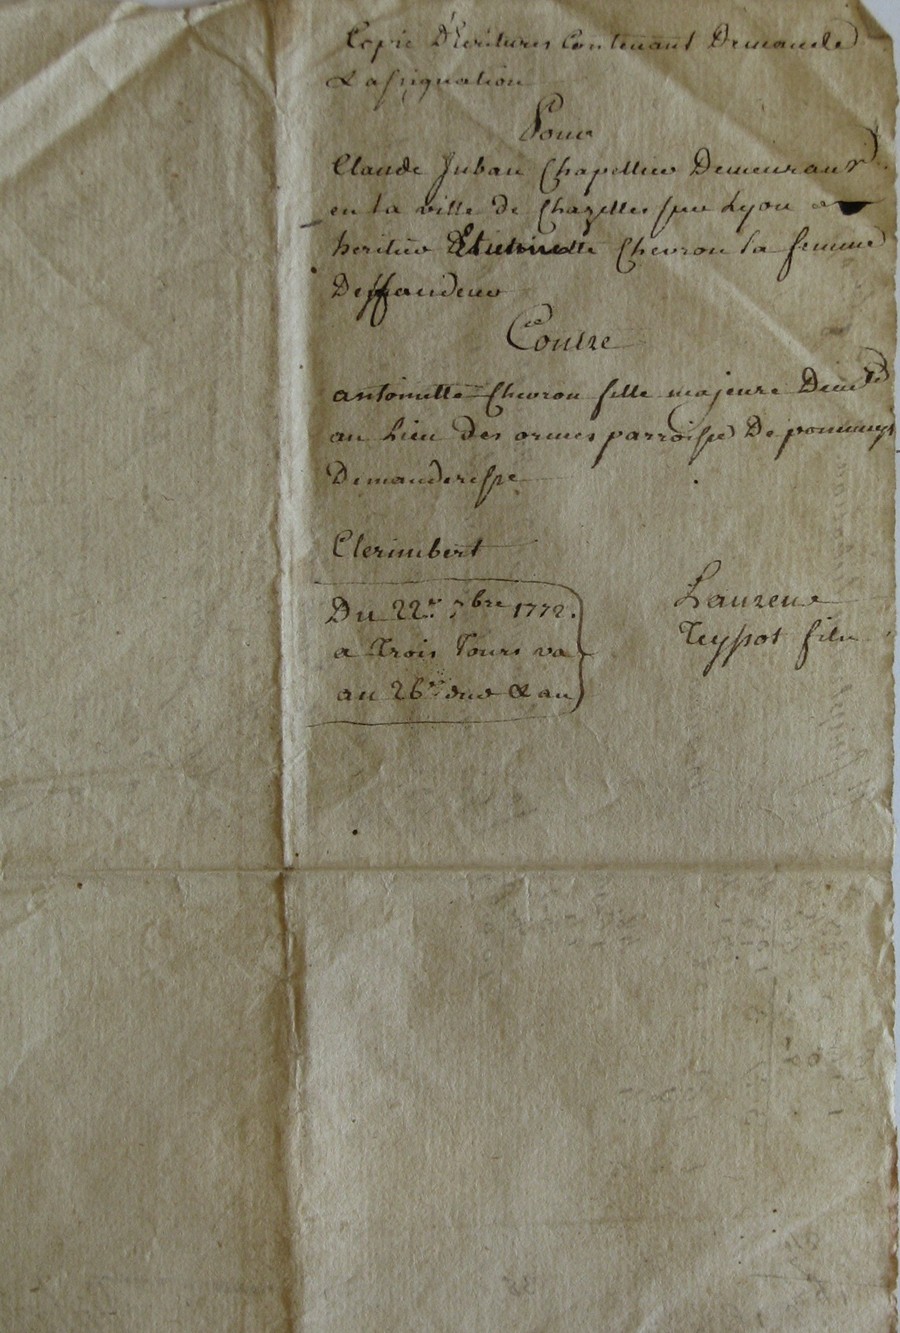 Copie D'Ecritures Contenant Demande
& assignation
Pour
Claude Juban Chapellier Demeurant
en la ville de Chazelles sur Lyon
heritier Etiennette Chevron sa femme
Deffandeur
Contre
antoinette Chevron fille majeure Demte
au Lieu des ormes parroisse De pommeys
Demanderesse
Clerimbert
Du 22e 7bre 1772.
a Trois Jours va
au 26e dud & au
Laurent
Teyssot fils